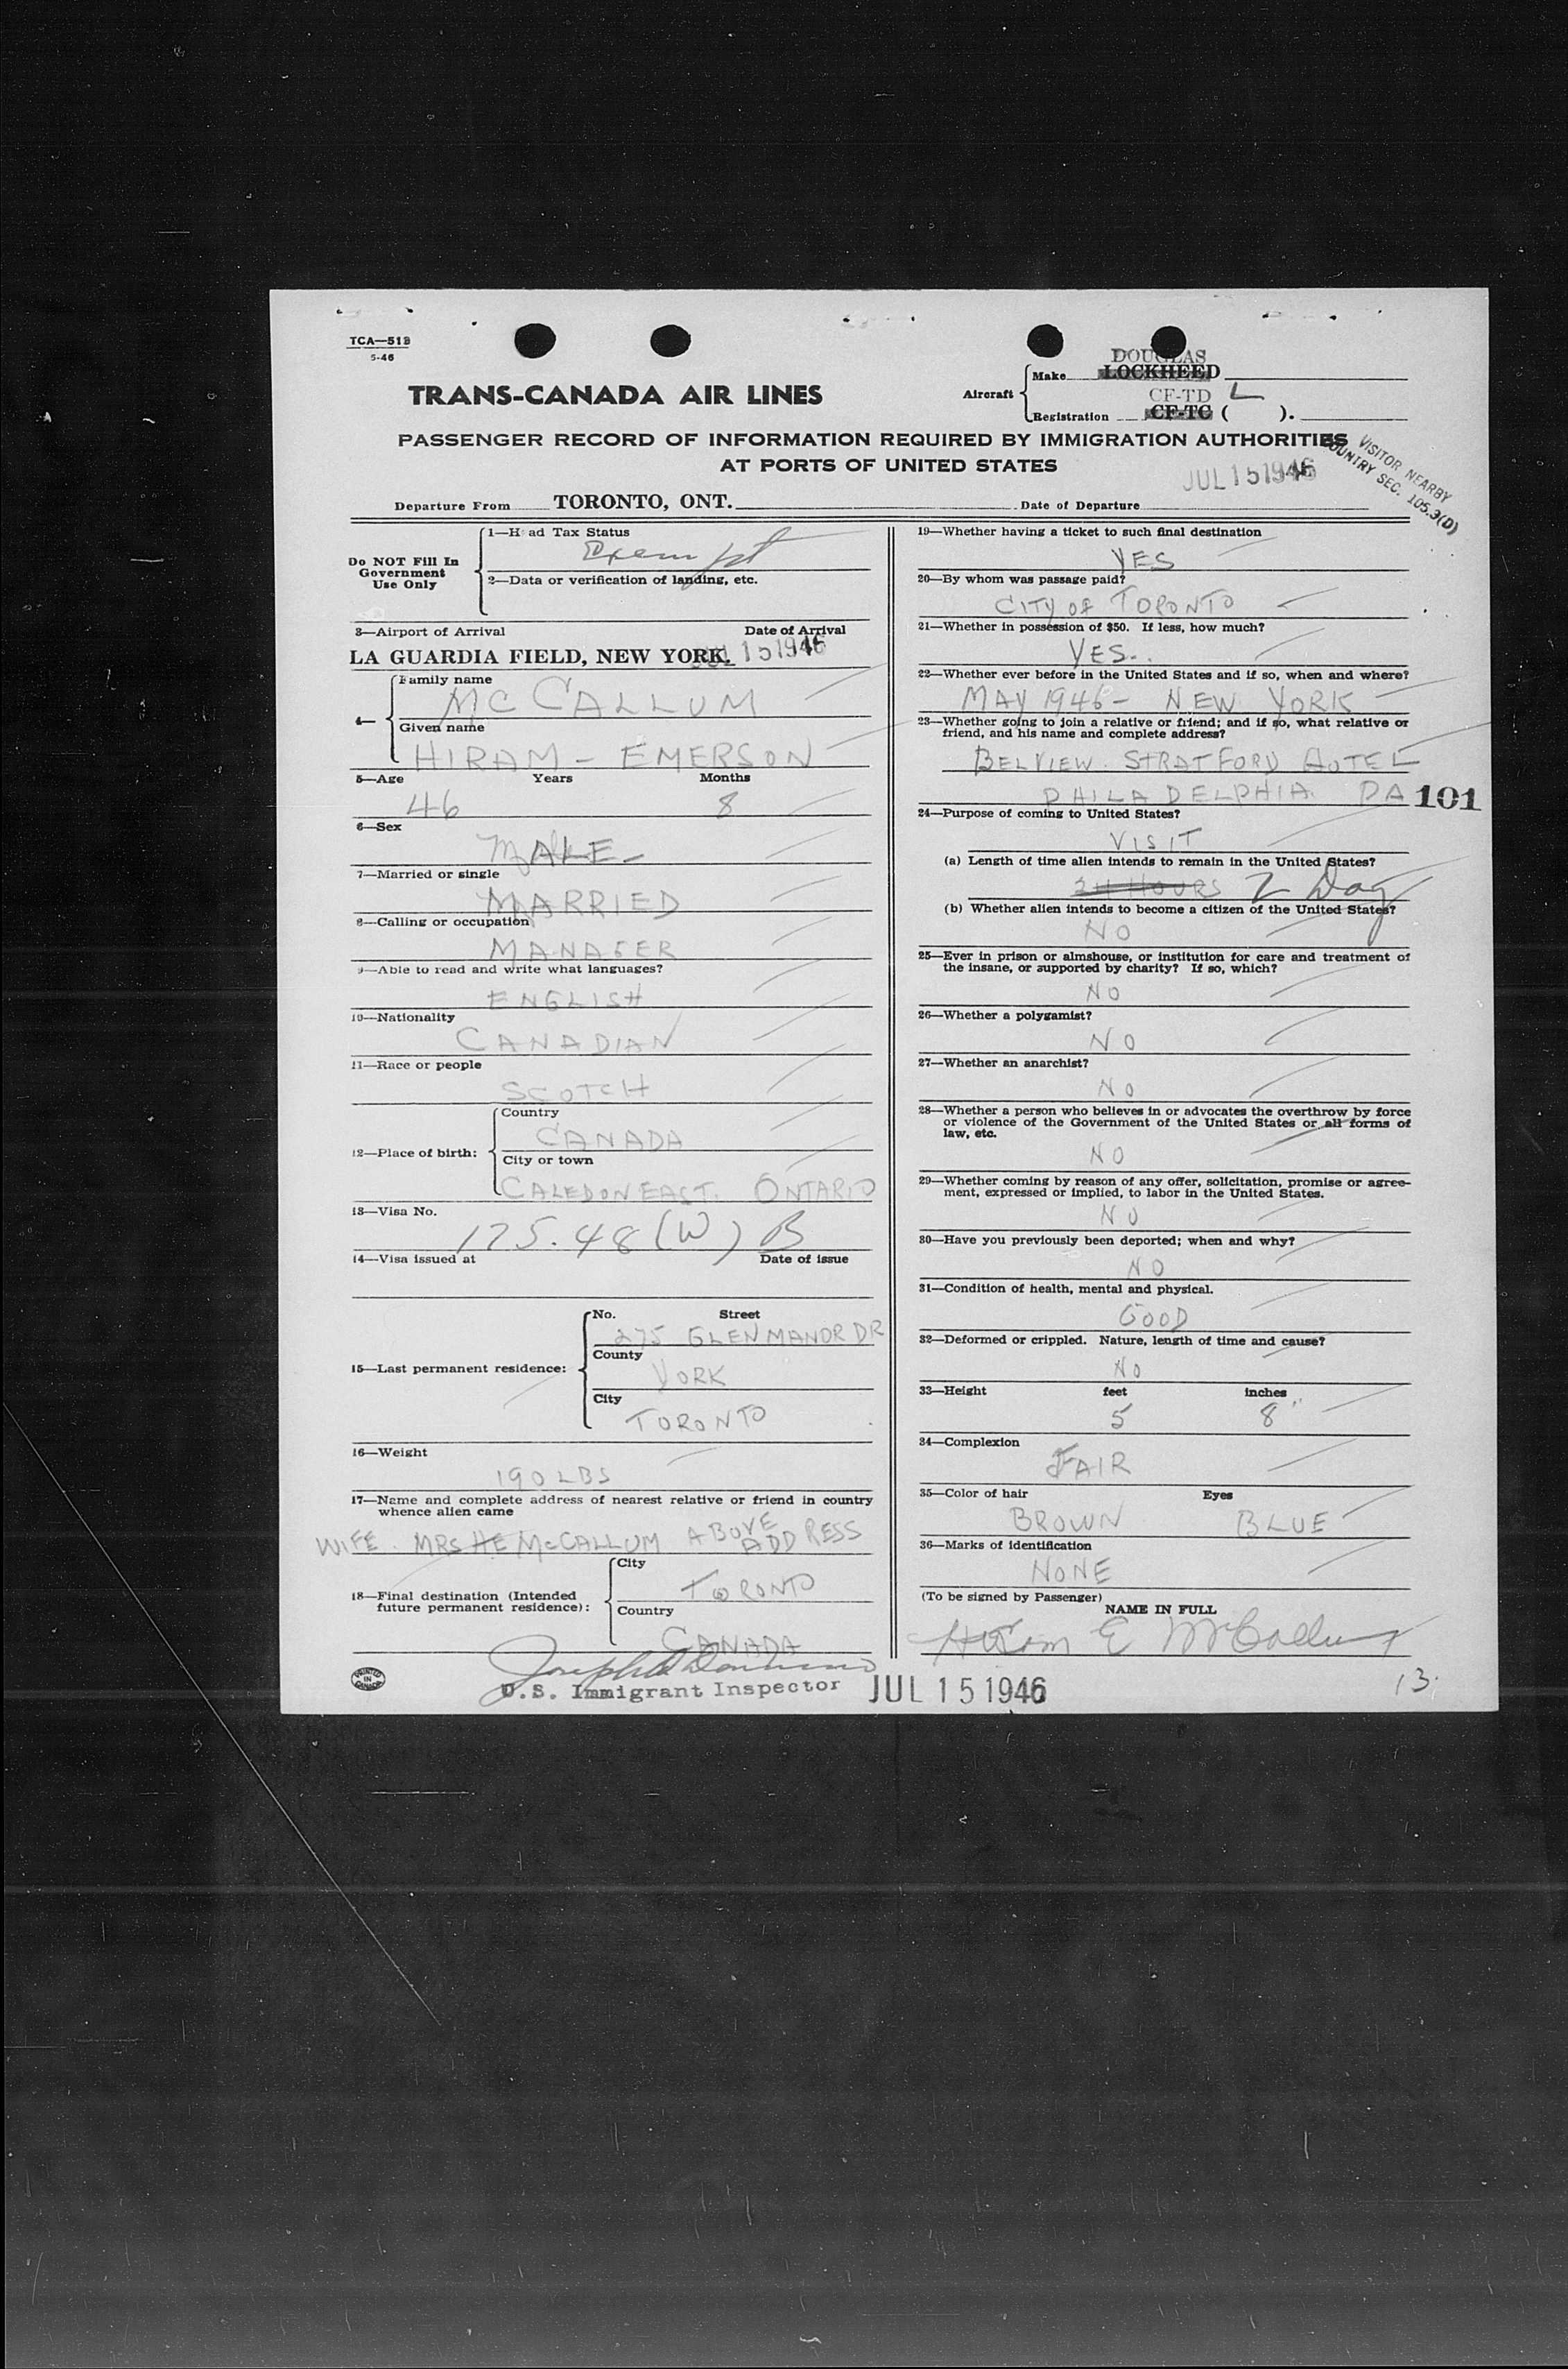 TCA—518
5-46
DOUGLAS
Aircraft
Make LOCKHEED
CF-TD L
Registration CF-TC ( ).
TRANS-CANADA AIR LINES
PASSENGER RECORD OF INFORMATION REQUIRED BY IMMIGRATION AUTHORITIES
AT PORTS OF UNITED STATES
VISITOR NEARBY
COUNTRY SEC. 105.3(D)
JUL 15 1946
Departure From TORONTO, ONT. Date of Departure
Do NOT Fill In
Government
Use Only
1—Head Tax Status
Exempt
2—Data or verification of landing, etc.
3—Airport of Arrival Date of Arrival
LA GUARDIA FIELD, NEW YORK. JUL 15 1946
4— Family name
MC CALLUM
Given name
HIRAM - EMERSON
5—Age Years Months
46 8
6—Sex
MALE
7—Married or single
MARRIED
8—Calling or occupation
MANAGER
9—Able to read and write what languages?
ENGLISH
10—Nationality
CANADIAN
11—Race or people
SCOTCH
12—Place of birth:
Country
CANADA
City or town
CALEDON EAST. ONTARIO
13—Visa No.
175.48 (W) B
14—Visa issued at Date of issue
15—Last permanent residence:
No. Street
275 GLEN MANOR DR
County
YORK
City
TORONTO
16—Weight
190 LBS
17—Name and complete address of nearest relative or friend in country
whence alien came
WIFE. MRS HE McCALLUM ABOVE ADDRESS
18—Final destination (Intended
future permanent residence):
City
TORONTO
Country
CANADA
PRINTED IN CANADA
U.S. Immigrant Inspector JUL 15 1946
19—Whether having a ticket to such final destination
YES
20—By whom was passage paid?
CITY OF TORONTO
21—Whether in possession of $50. If less, how much?
YES.
22—Whether ever before in the United States and if so, when and where?
MAY 1946 - NEW YORK
23—Whether going to join a relative or friend; and if so, what relative or
friend, and his name and complete address?
BELVIEW STRATFORD HOTEL
PHILADELPHIA PA 101
24—Purpose of coming to United States?
VISIT
(a) Length of time alien intends to remain in the United States?
24 HOURS 2 Day
(b) Whether alien intends to become a citizen of the United States?
NO
25—Ever in prison or almshouse, or institution for care and treatment of
the insane, or supported by charity? If so, which?
NO
26—Whether a polygamist?
NO
27—Whether an anarchist?
NO
28—Whether a person who believes in or advocates the overthrow by force
or violence of the Government of the United States or all forms of
law, etc.
NO
29—Whether coming by reason of any offer, solicitation, promise or agree-
ment, expressed or implied, to labor in the United States.
NO
30—Have you previously been deported; when and why?
NO
31—Condition of health, mental and physical.
GOOD
32—Deformed or crippled. Nature, length of time and cause?
NO
33—Height feet inches
5 8"
34—Complexion
FAIR
35—Color of hair Eyes
BROWN BLUE
36—Marks of identification
NONE
(To be signed by Passenger)
NAME IN FULL
Hiram E McCallum
13.